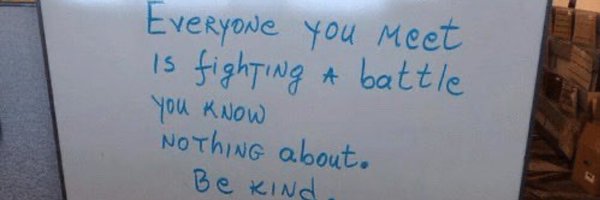 Everyone you Meet
is fighting a battle
you know
nothing about.
Be kind.